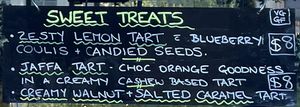 SWEET TREATS
V=VG
GF
• ZESTY LEMON TART = BLUEBERRY
COULIS + CANDIED SEEDS.
$8
• JAFFA TART - CHOC ORANGE GOODNESS
IN A CREAMY CASHEW BASED TART
$8
• CREAMY WALNUT + SALTED CARAMEL TART